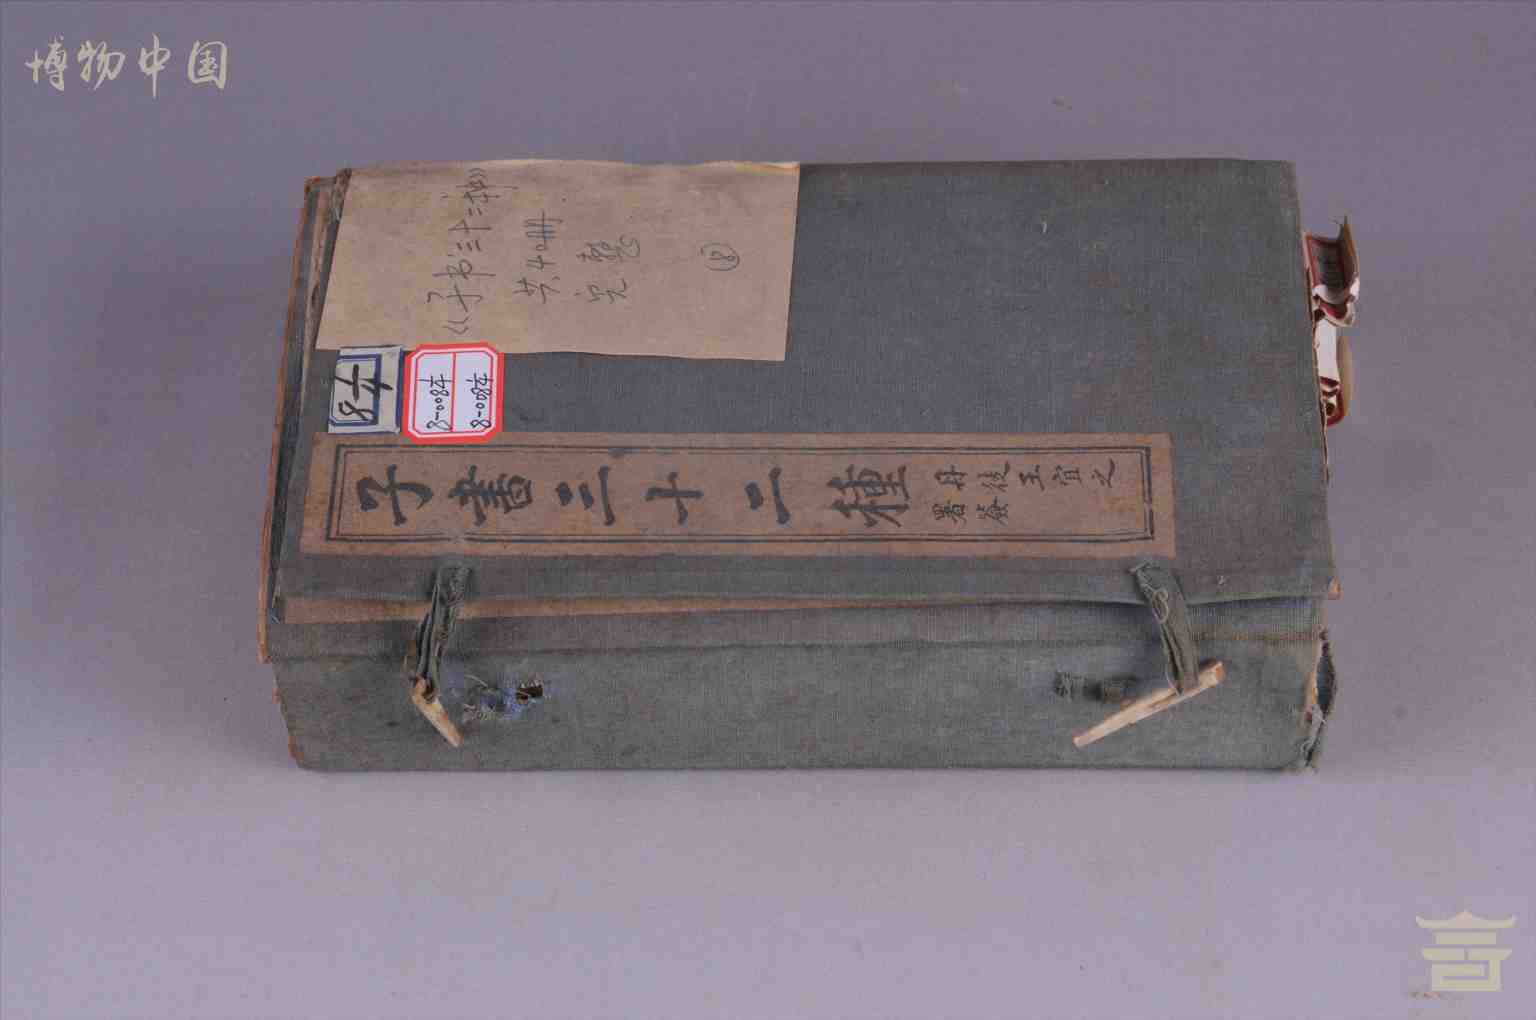 博物中国
《子书三十二种》
共40册
完整
⑧
8-0084
8-0084
子書三十二種
丹徒王宜之
署簽